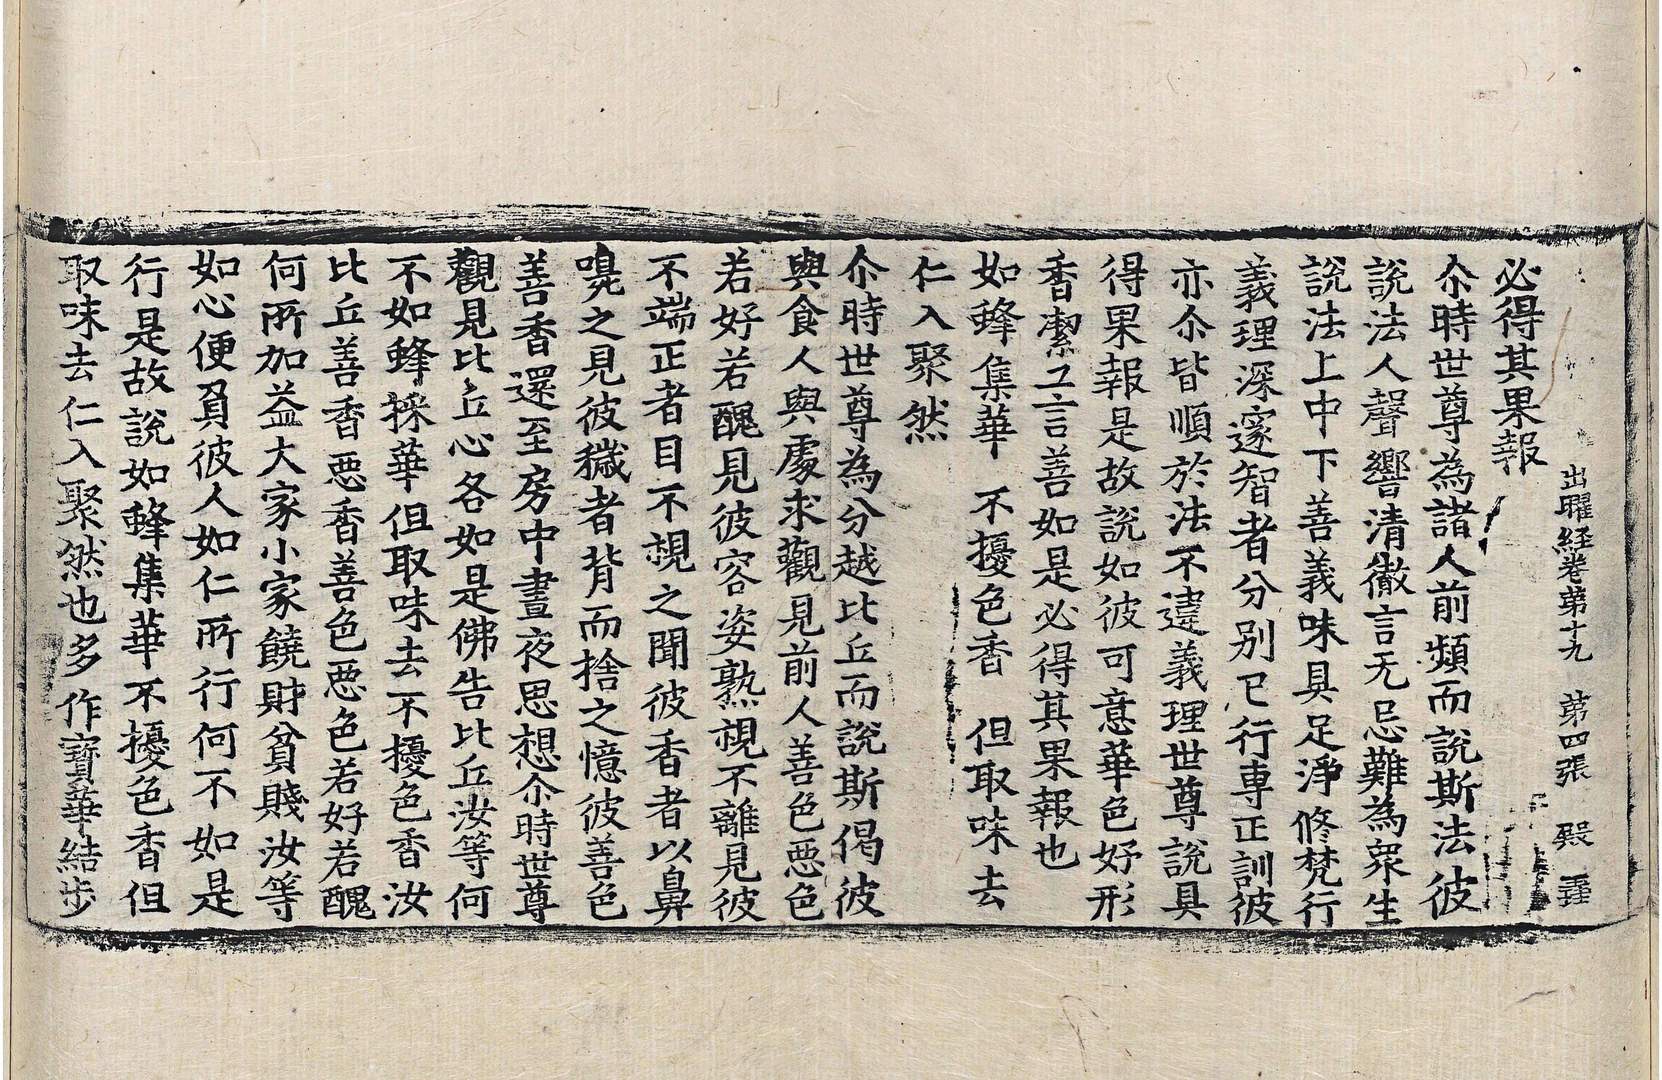 出曜経卷第十九 第四張 殿
必得其果報
尒時世尊為諸人前頻而說斯法彼
說法人聲響清徹言无忌難為衆生
說法上中下善義味具足淨脩梵行
義理深邃智者分别已行專正訓彼
亦尒皆順於法不違義理世尊說具
得果報是故說如彼可意華色好形
香潔工言善如是必得其果報也
如蜂集華 不擾色香 但取味去
仁入聚然
尒時世尊為分越比丘而說斯偈彼
與食人與處求觀見前人善色惡色
若好若醜見彼容姿熟視不離見彼
不端正者目不視之聞彼香者以鼻
嗅之見彼穢者背而捨之憶彼善色
善香還至房中晝夜思想尒時世尊
觀見比丘心各如是佛告比丘汝等何
不如蜂採華但取味去不擾色香汝
比丘善香惡香善色惡色若好若醜
何所加益大家小家饒財貧賤汝等
如心便負彼人如仁所行何不如是
行是故說如蜂集華不擾色香但
取味去仁入聚然也多作寶華結步